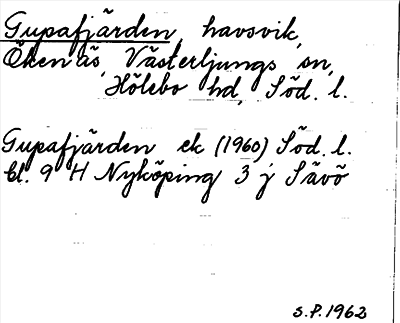 Gupafjärden, havsvik,
Öken ås, Västerljungs sn,
Hölebo hd, Söd. l.
Gupafjärden ek (1960) Söd. l.
bl. 9 H Nyköping 3 j Sävö
S.P. 1962